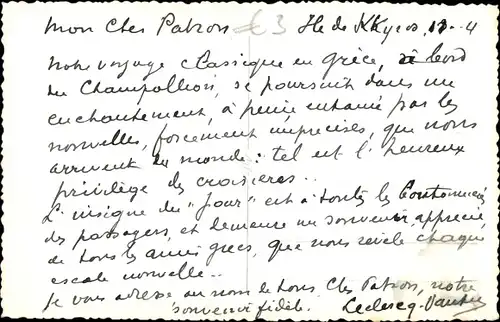 Mon Cher Patron € 3 Ile de Skyros, 13-4
Notre voyage classique en Grèce, à bord
du Champollion, se poursuit dans un
enchantement, à peine entamé par les
nouvelles, forcément imprécises, que nous
arrivent du monde : tel est l'heureux
privilège des croisières..
L'insigne du "Jour" est à toutes les boutonnières
des passagers, et demeure un souvenir, apprécié,
de tous les amis grecs, que nous révèle chaque
escale nouvelle..
Je vous adresse au nom de tous, Cher Patron, notre
souvenir fidèle. Leclercq-